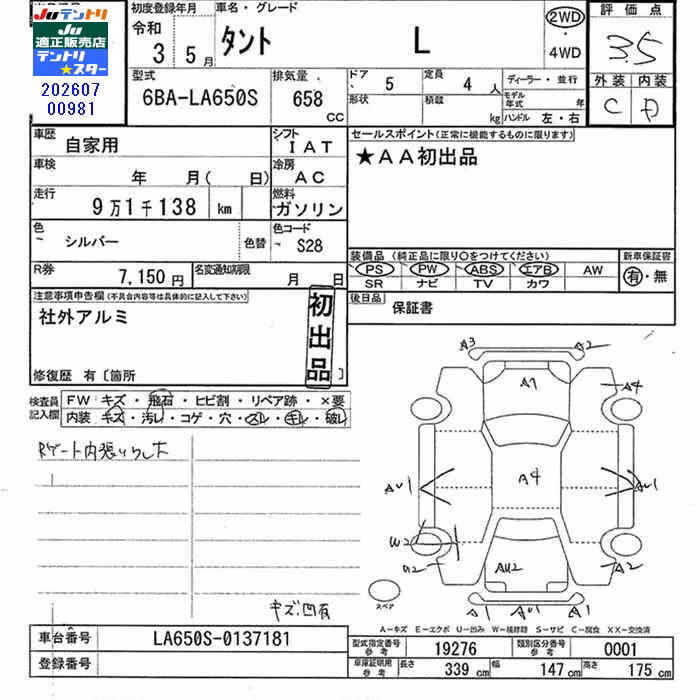 Juテントリ
Ju
適正販売店
テントリ
★スター
202607
00981
初度登録年月
令和
3 5月
車名・グレード
タント L
2WD
・
4WD
評価点
3.5
外装 内装
C D
型式
6BA-LA650S
排気量
658
CC
ドア 5
形状
定員 4人
積載 kg
ディーラー・並行
モデル年式 年
ハンドル 左・右
車歴 自家用
シフト IAT
車検 年 月( 日)
冷房 AC
走行 9万1千138 km
燃料 ガソリン
色 シルバー 色替
色コード S28
R券 7,150円
名変通知期限 月 日
セールスポイント(正常に機能するものに限ります)
★AA初出品
装備品(純正品に限り○をつけてください)
PS PW ABS エアB AW
SR ナビ TV カワ
新車保証書
有・無
後日品 保証書
注意事項申告欄(不具合内容等は具体的に記入して下さい)
社外アルミ
初出品
修復歴 有〔箇所 〕
検査員
記入欄
FW キズ・飛石・ヒビ割・リペア跡・×要
内装 キズ・汚レ・コゲ・穴・スレ・キレ・破レ
Rゲート内張り
キズ凹有
A3 A2
A1 A4
AU1 A4 AU1
W2
A2
AU2 A2
A1 AU1 A1
スペア
A-キズ E-エクボ U-凹み W-補修跡 S-サビ C-腐食 XX-交換済
車台番号 LA650S-0137181
登録番号
型式指定番号
参考
19276
類別区分番号
参考
0001
車庫証明用
参考
長さ 339cm 幅 147cm 高さ 175cm